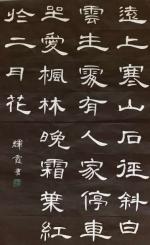 遠上寒山石徑斜白
雲生處有人家停車
坐愛楓林晚霜葉紅
於二月花
輝霞書